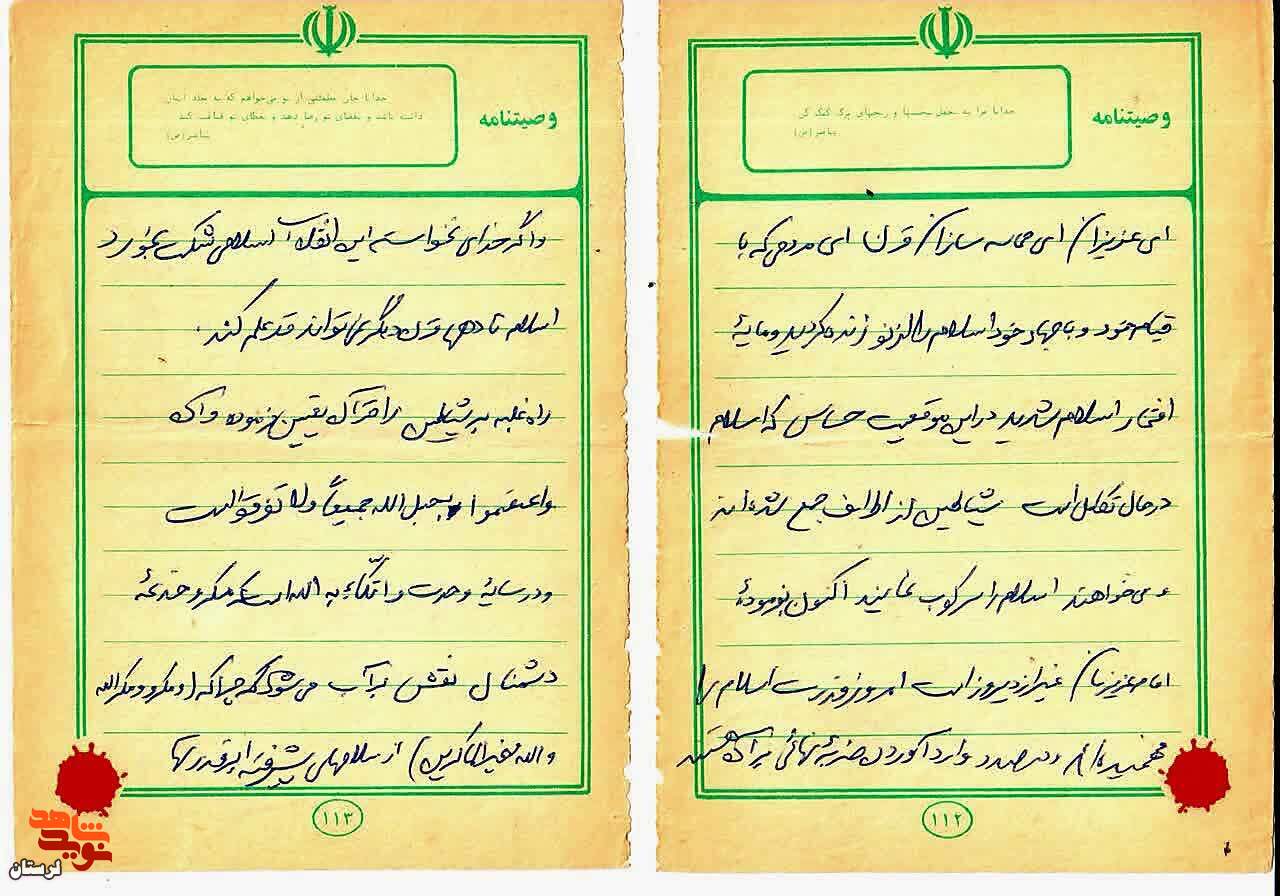 وصیتنامه
خدایا مرا به
ای عزیزان ای حماسه سازان قرن ای مردمی که با
قیام خود و با جهاد خود اسلام را از نو زنده کردید و مایهٔ
افتخار اسلام شدید در این موقعیت حساس که اسلام
در حال تکامل است شیاطین از اطراف جمع شده‌اند
و می‌خواهند اسلام را سرکوب نمایند اکنون بفرمودهٔ
امام عزیزمان غیر از دیروز است امروز قدرت اسلام را
فهمیده‌اند و در صدد وارد آوردن ضربهٔ نهائی بر آن هستند
۱۱۲
وصیتنامه
خدایا جان مطمئنی از تو می‌خواهم که به
داشته باشد و بقضای تو رضا دهد و بعطای تو قناعت کند
و اگر خدای نخواسته این انقلاب اسلامی شکست بخورد
اسلام تا دهها قرن دیگر نمی‌تواند قد علم کند.
راه غلبه بر شیاطین را قرآن تعیین فرموده و آن
واعتصموا بحبل الله جمیعاً ولا تفرقوا است
و در سایهٔ وحدت و اتکّاء به الله است که مکر و خدعهٔ
دشمنان نقش بر آب می‌شود چرا که (و مکرو و مکر الله
والله خیر الماکرین) از سلاحهای پیشرفته ابرقدرتها
۱۱۳
نوید شاهد
لرستان